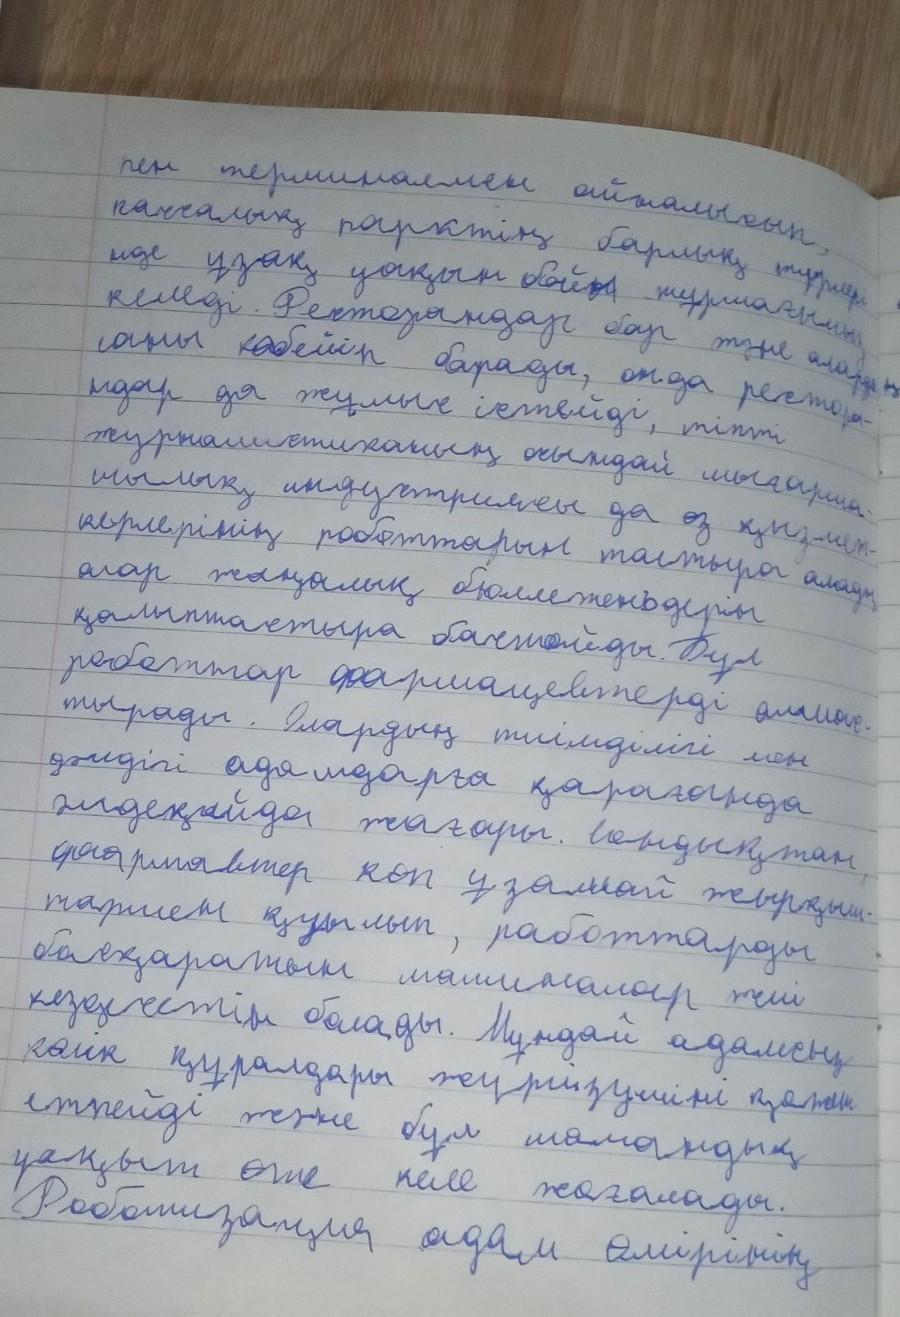 пен терминалмен айналысып,
парктің барлық түрлері
нде ұзақ уақын бойы жұрмағымыз
келеді. Ресторандар бар және олардың
саны көбейіп барады, онда рестора-
ндар да жұмыс істейді, тіпті
журналистиканың осындай шығарма-
шылық индустриясы да өз қызмет-
керлерінің роботтарын тастыра алады,
олар жаңалық бюллетеньдерін
қалыптастыра бастайды. Бұл
роботтар фармацевтерді алмас-
тырады. Олардың тиімділігі мен
дәлдігі адамдарға қарағанда
әлдеқайда жоғары. Сондықтан,
көп ұзамай жырқыш-
тармен құрылып, работтарды
басқаратын машиналар жиі
кездестін болады. Мұндай адамсыз
көлік құралдары жүргізушіні қажет
етпейді және бұл мамандық
уақыт өте келе жоғалады.
Роботизация адам өмірінің